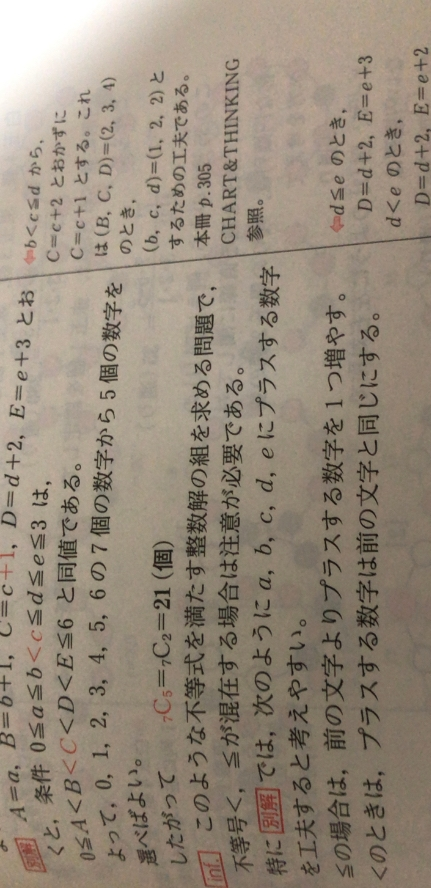 別解 A=a, B=b+1, C=c+1, D=d+2, E=e+3 とお
くと、条件 0≦a≦b<c≦d≦e≦3 は、
0≦A<B<C<D<E≦6 と同値である。
よって、0, 1, 2, 3, 4, 5, 6 の7個の数字から5個の数字を
選べばよい。
したがって ₇C₅=₇C₂=21 (個)
inf. このような不等式を満たす整数解の組を求める問題で、
不等号<, ≦が混在する場合は注意が必要である。
特に 別解 では、次のように a, b, c, d, e にプラスする数字
を工夫すると考えやすい。
≦の場合は、前の文字よりプラスする数字を1つ増やす。
<のときは、プラスする数字は前の文字と同じにする。
⇐b<c≦d から、
C=c+2 とおかずに
C=c+1 とする。これ
は (B, C, D)=(2, 3, 4)
のとき、
(b, c, d)=(1, 2, 2) と
するための工夫である。
本冊 p.305
CHART&THINKING
参照。
⇐d≦e のとき、
D=d+2, E=e+3
d<e のとき、
D=d+2, E=e+2